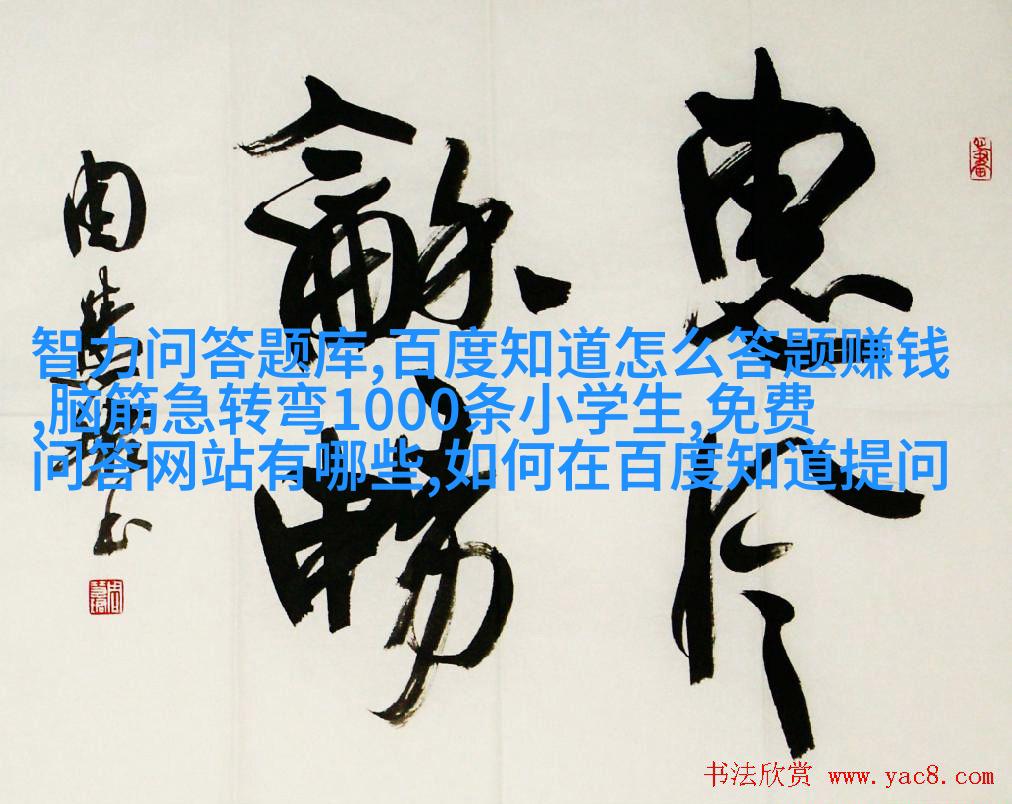 惠风
龢暢
周慧珺书
智力问答题库,百度知道怎么答题赚钱
,脑筋急转弯1000条小学生,免费
问答网站有哪些,如何在百度知道提问
书法欣赏 www.yac8.com